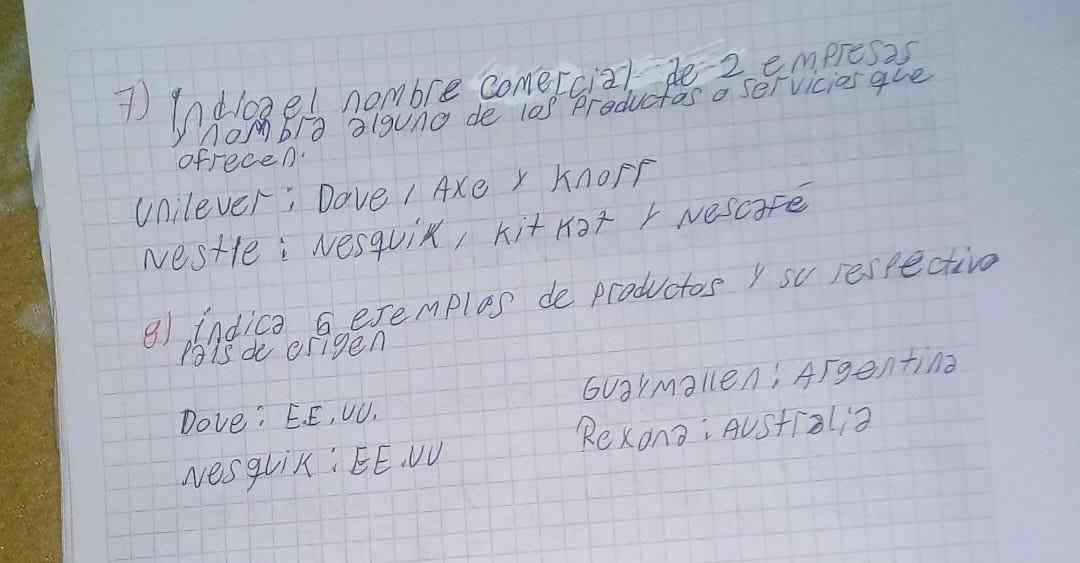 7) Indica el nombre comercial de 2 empresas
y nombra alguno de los Productos o servicios que
ofrecen.
Unilever: Dove, Axe y Knorr
Nestle: Nesquik, Kit Kat y Nescafé
8) indica 6 ejemplos de productos y su respectivo
País de origen
Dove: EE.UU.
Nesquik: EE.UU
Guaymallen: Argentina
Rexona: Australia